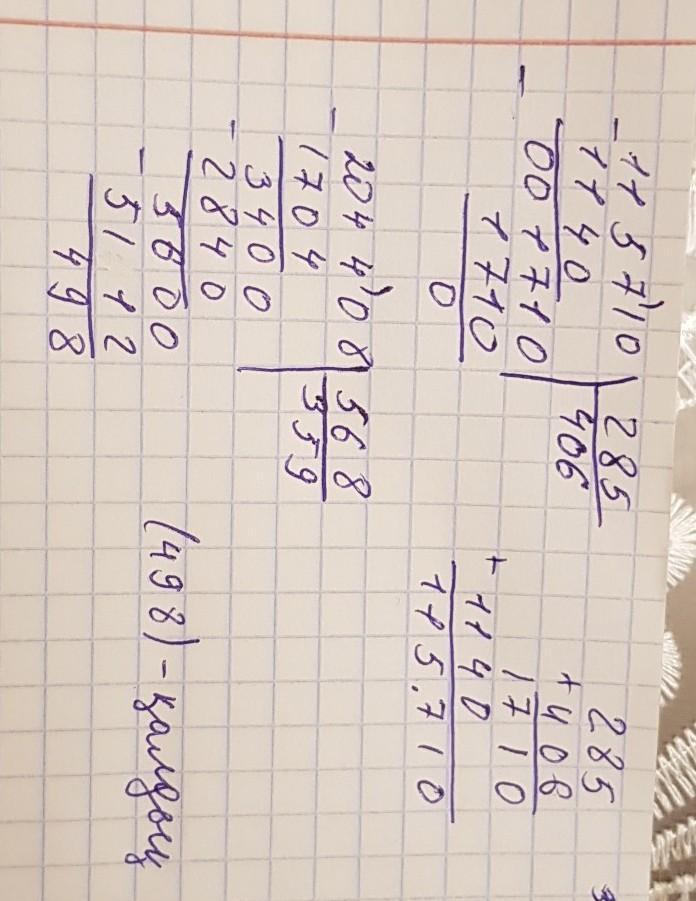 - 115710 | 285
1140 | 406
- 001710
1710
0
285
+ 406
1710
+ 1140
115.710
- 204408 | 568
1704 | 359
3400
- 2840
5600
- 5112
498
(498) - қалдық